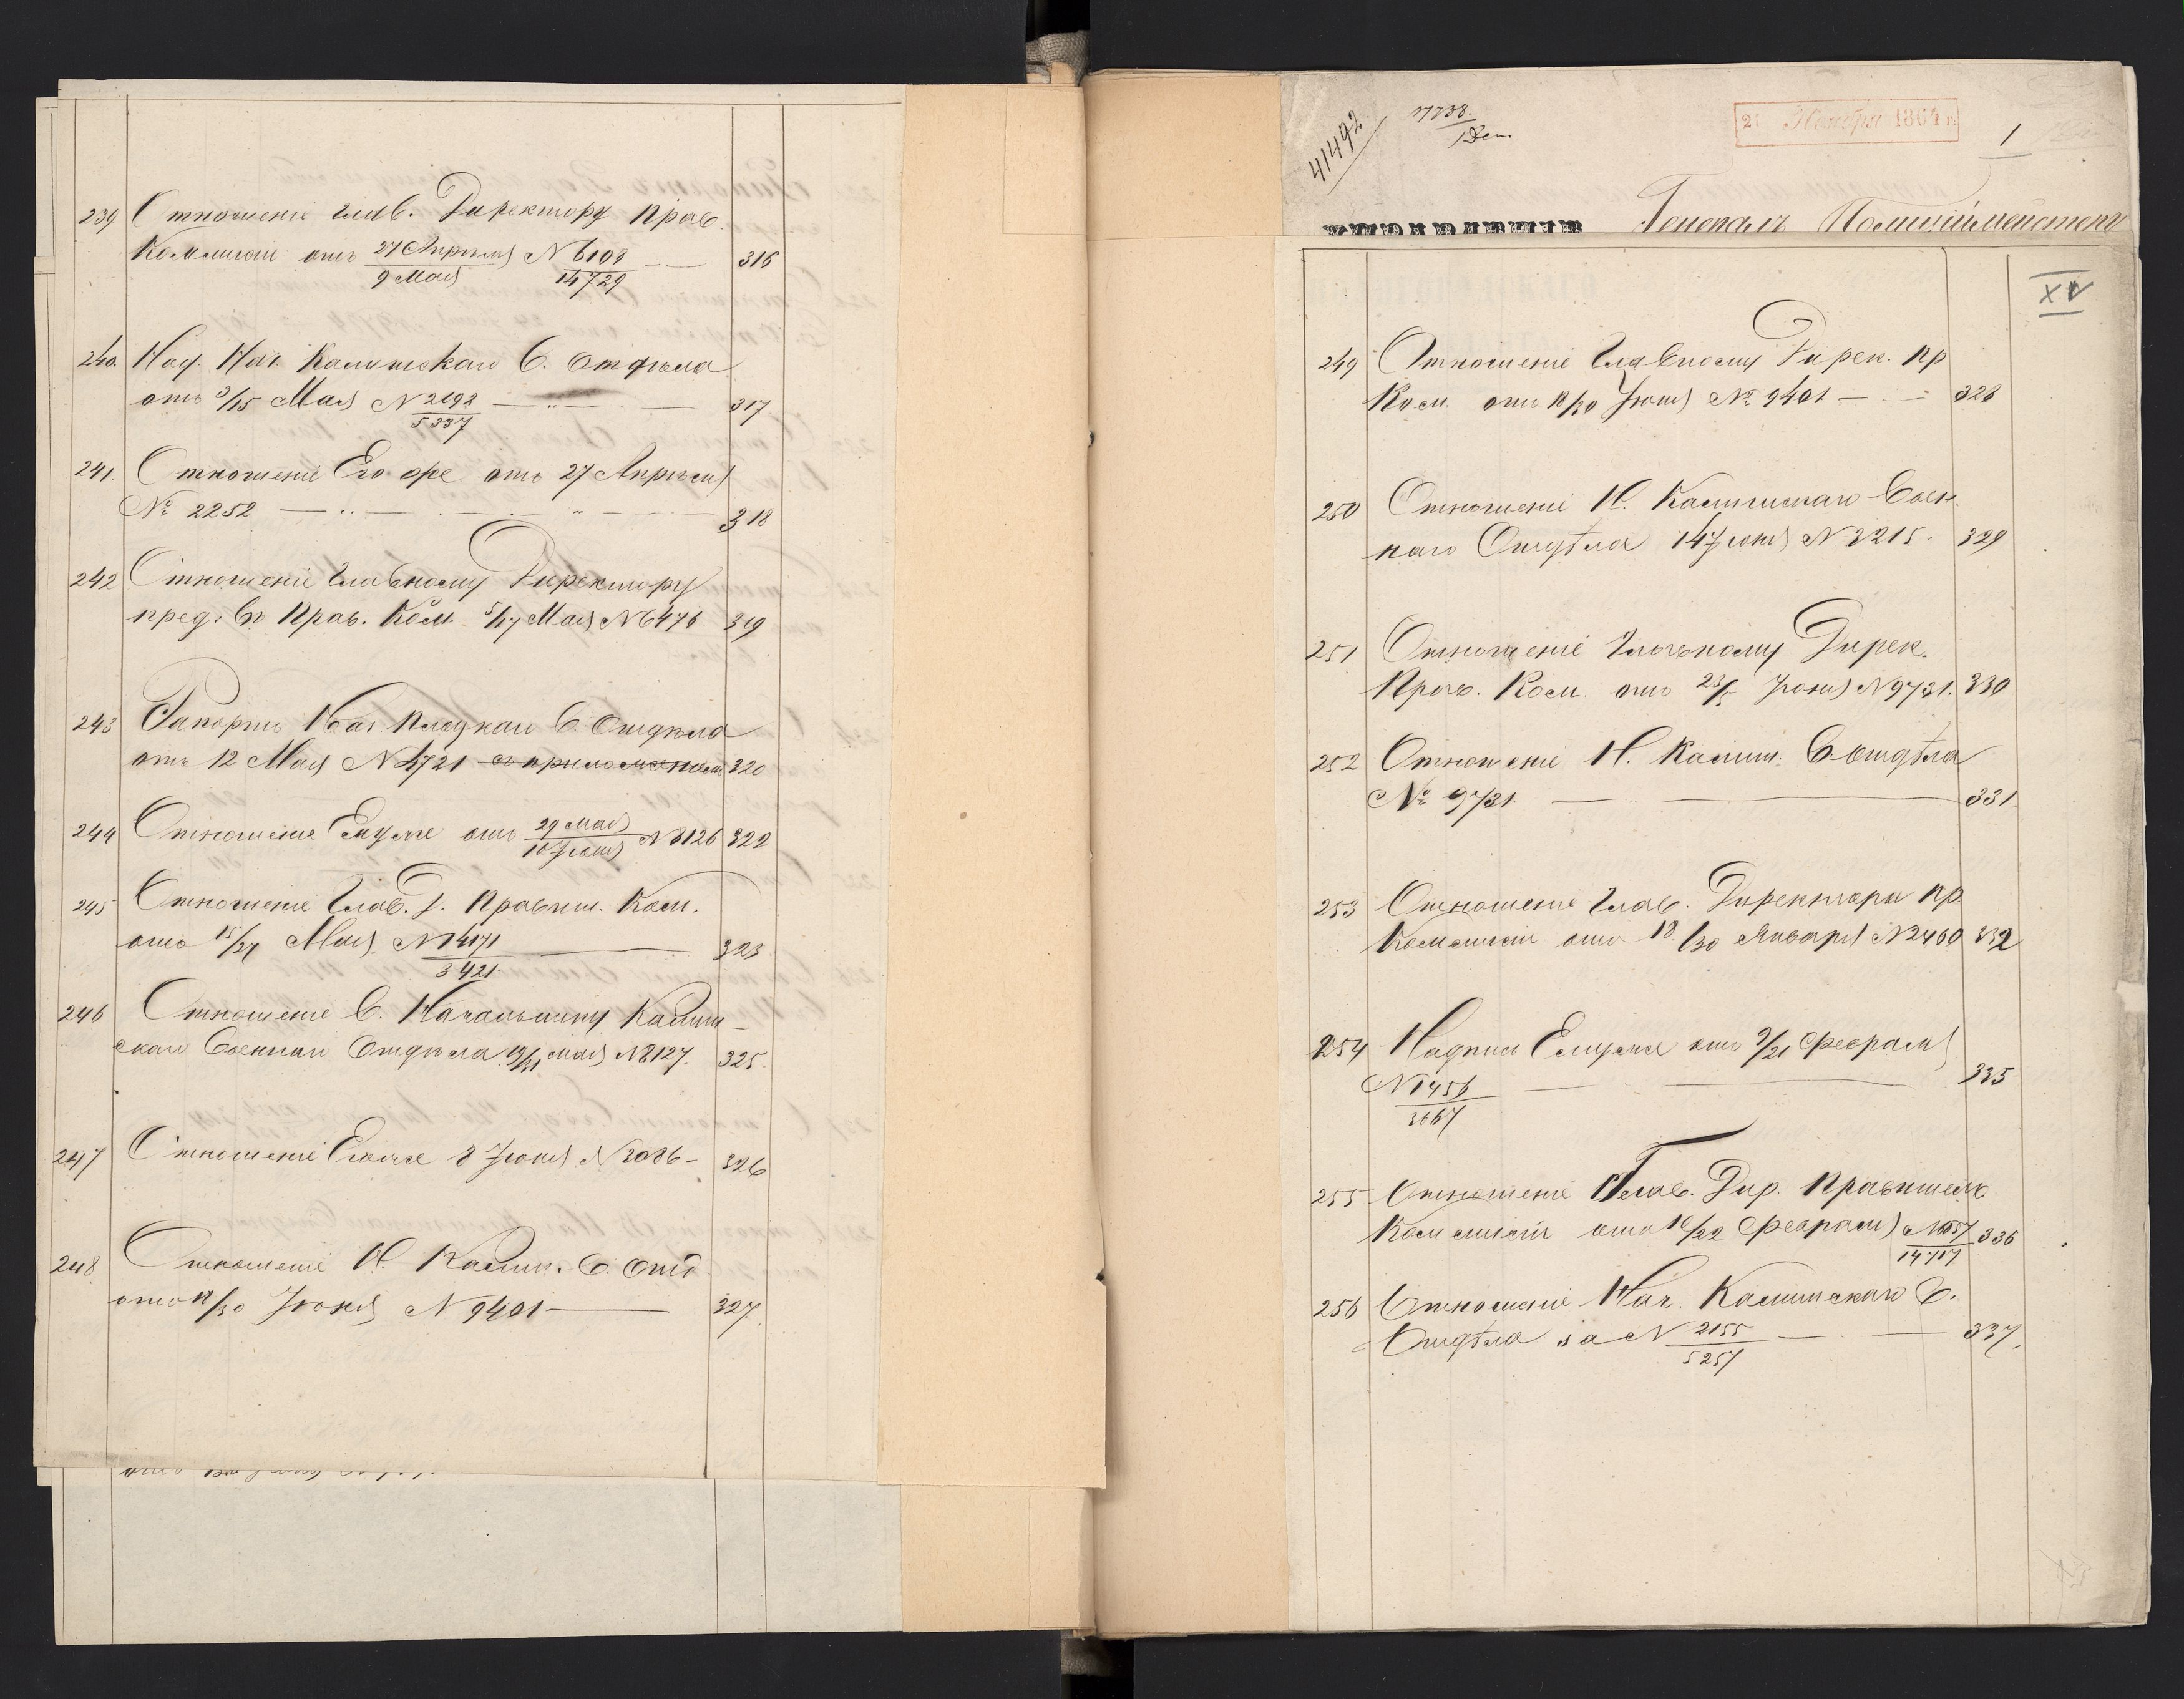 239 Отношеніе Глав. Директору Прав.
Коммисіи отъ 27 Апрѣля/9 Мая N 6108/14729 — 316
240. Над. Нач. Калишскаго В. Отдѣла
отъ 3/15 Мая N 2192/5337 — 317
241. Отношеніе Его же отъ 27 Апрѣля
№ 2252 — 318
242 Отношеніе Главному Директору
пред: въ Прав. Ком. 5/17 Мая N 6476 319
243 Рапортъ Нач. Плоцкаго В. Отдѣла
отъ 12 Мая N 4721 съ приложеніем 320
244 Отношеніе Ему же отъ 29 Мая/10 Іюня N 8126 322
245 Отношеніе Глав. Д. Правит. Ком.
отъ 15/27 Мая N 14171/3421 — 323
246 Отношеніе В. Начальнику Калиш-
скаго Военнаго Отдѣла 19/31 Мая N 8127. 325.
247 Отношеніе Его же 8 Іюня N 3086 — 326
248. Отношеніе Н. Калиш. В. Отд.
отъ 18/30 Іюня N 9401 — 327.
41492
2 Ноября 1864 г.
1
Генералъ Полицiймейстеръ
XV
249 Отношеніе Главному Дирек. Пр
Ком. отъ 18/30 Іюня № 9401 — 328
250 Отношеніе Н. Калишскаго Воен-
наго Отдѣла 14 Іюня N 3215. 329
251 Отношеніе Главному Дирек.
Прав. Ком отъ 23/5 Іюня N 9731. 330
252 Отношеніе Н. Калиш. В Отдѣла
№ 9731. — 331
253 Отношеніе Глав. Директора Пр.
Коммисіи отъ 18/30 Января N 2460 332
254 Надпись Ему же отъ 9/21 Февраля
N 1456/3667 — 335
255 Отношеніе Глав. Дир. Правительс
Коммисіи отъ 10/22 Февраля N 1057/14717 336
256 Отношеніе Нач. Калишскаго В.
Отдѣла за N 2155/5257 — 337.